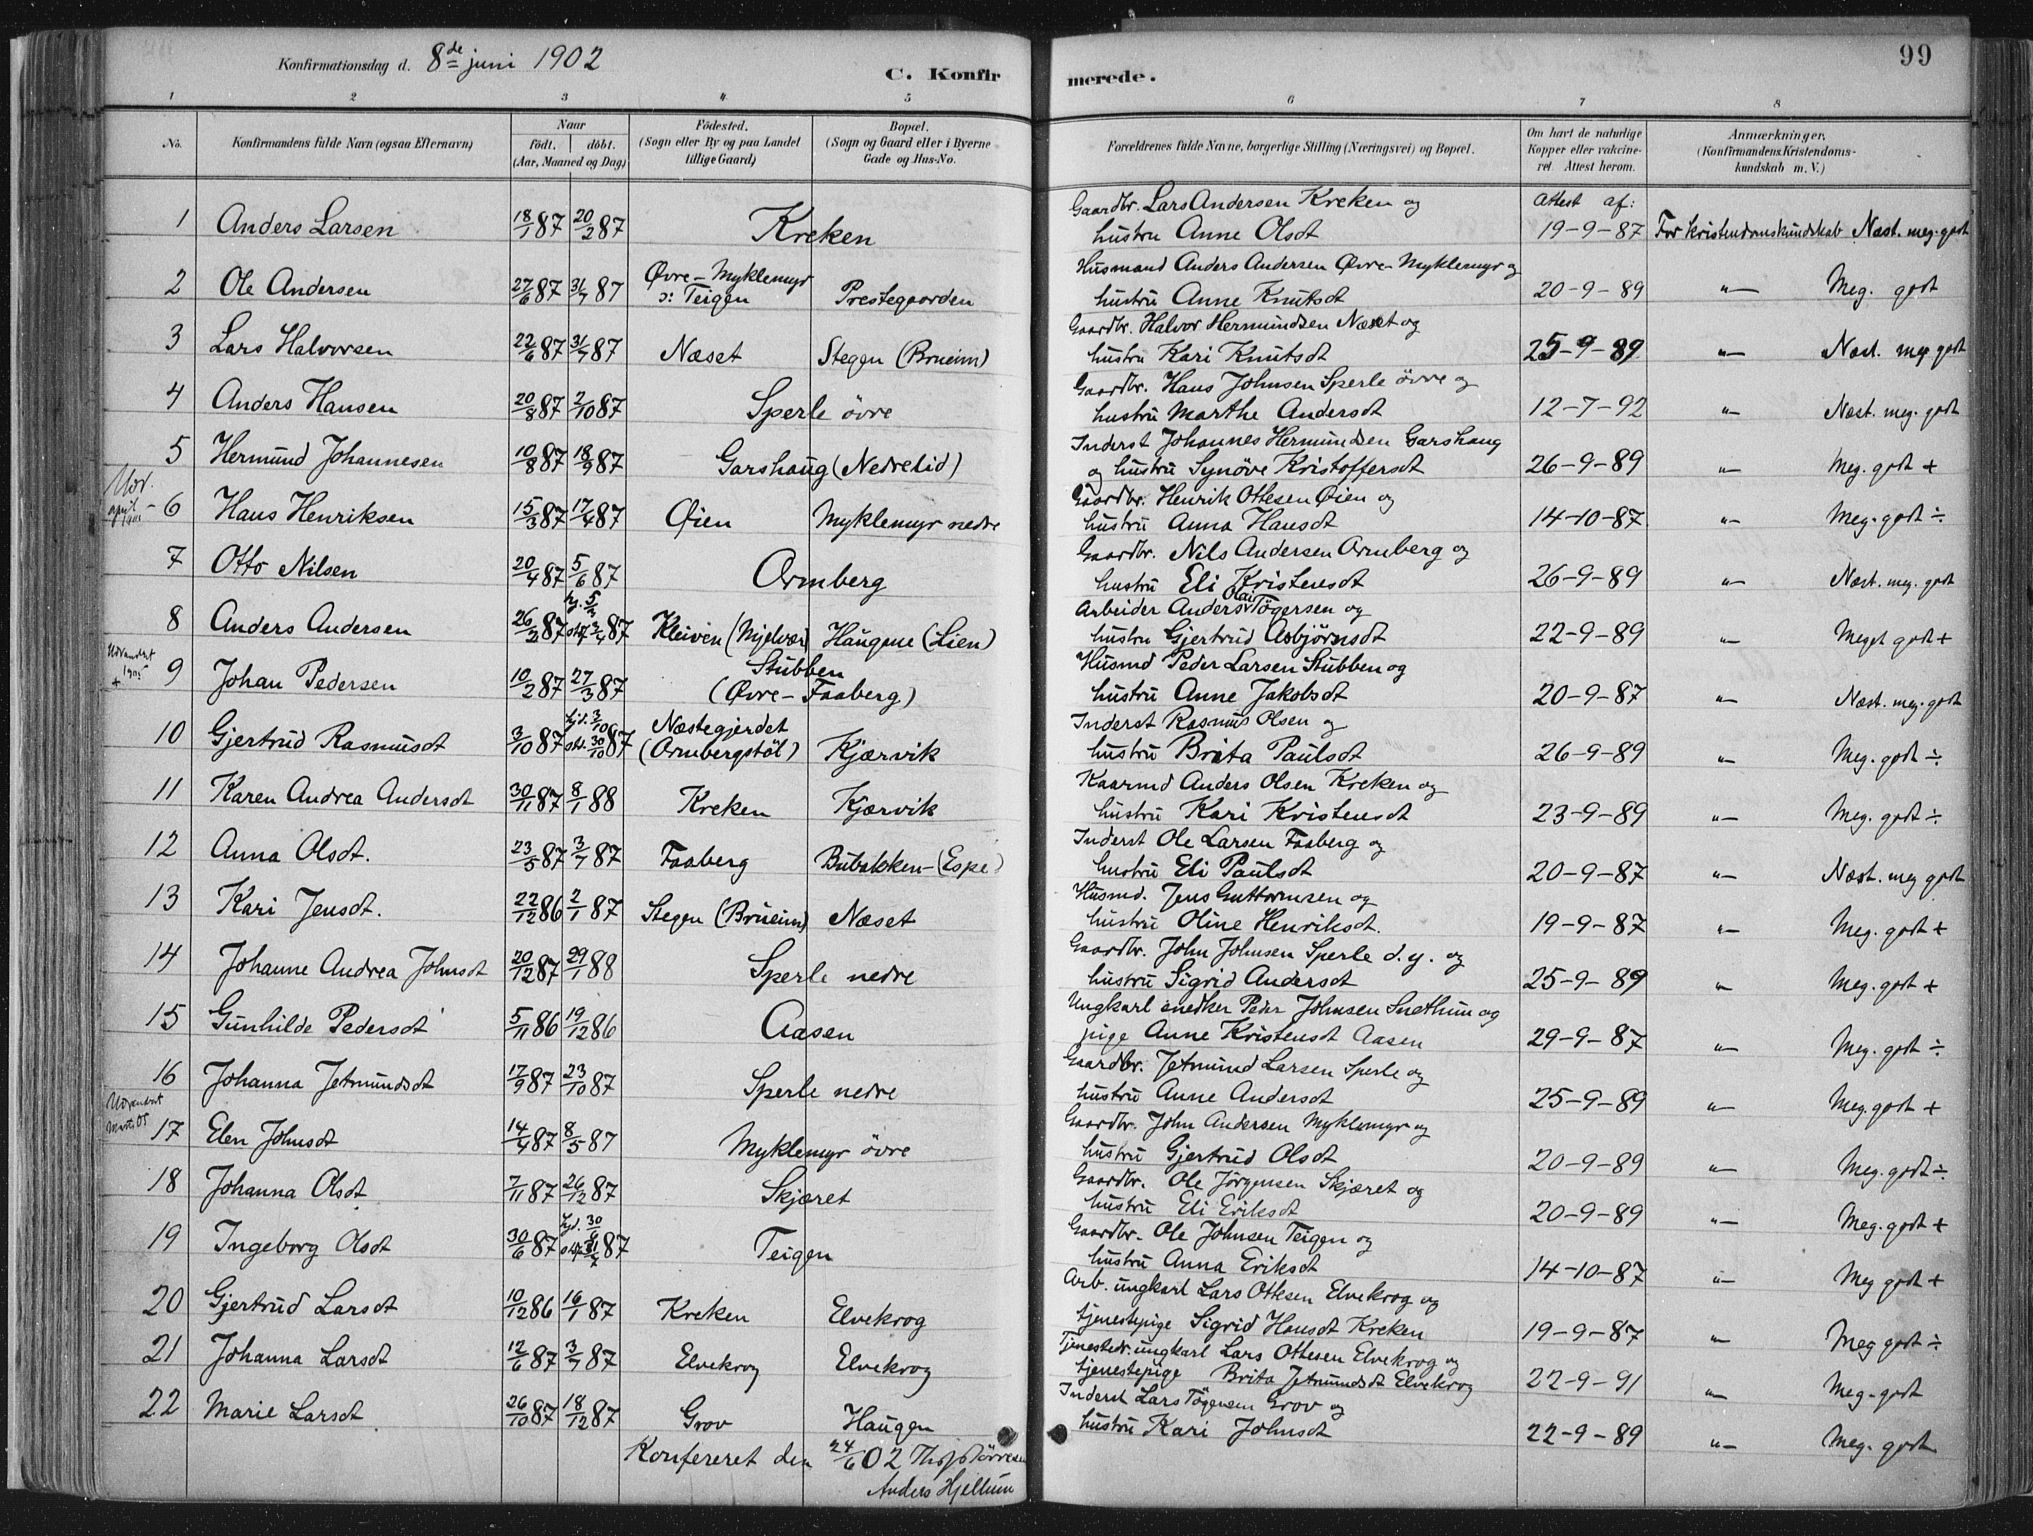 Konfirmationsdag d. 8de juni 1902
C. Konfirmerede.
99
1 2 3 4 5 6 7 8
No.
Konfirmandens fulde Navn (ogsaa Efternavn)
Naar
født. døbt.
(Aar, Maaned og Dag)
Fødested.
(Sogn eller By og paa Landet
tillige Gaard)
Bopæl.
(Sogn og Gaard eller i Byerne
Gade og Hus-No.
Forældrenes fulde Navne, borgerlige Stilling (Næringsvei) og Bopæl.
Om havt de naturlige
Kopper eller vakcine-
ret. Attest herom.
Anmærkninger,
(Konfirmandens Kristendoms-
kundskab m. V.)
Attest af:
1 Anders Larsen 18/1 87 20/2 87 Kreken Gaardbr. Lars Andersen Kreken og
hustru Anne Olsdt 19-9-87 For kristendomskundskab Næst. meg. godt
2 Ole Andersen 27/6 87 31/7 87 Øvre-Myklemyr
ɔ: Teigen Prestegaarden Husmand Anders Andersen Øvre-Myklemyr og
hustru Anne Knutsdt 20-9-89 „ Meg. godt
3 Lars Halvorsen 22/6 87 31/7 87 Næset Stegen (Brueim) Gaardbr. Halvor Hermundsen Næset og
hustru Kari Knutsdt 25-9-89 „ Næst. meg godt
4 Anders Hansen 20/8 87 2/10 87 Sperle øvre Gaardbr. Hans Johnsen Sperle øvre og
hustru Marthe Andersdt 12-7-92 „ Næst. meg. godt
5 Hermund Johannesen 10/8 87 18/9 87 Garshaug (Nedrelid) Inderst Johannes Hermundsen Garshaug
og hustru Synøve Kristoffersdt 26-9-89 „ Meg. godt +
april
6 Hans Henriksen 15/3 87 17/4 87 Øien Myklemyr nedre Gaardbr. Henrik Ottesen Øien og
hustru Anna Hansdt 14-10-87 „ Meg. godt ÷
7 Otto Nilsen 20/4 87 5/6 87 Ormberg Gaardbr. Nils Andersen Ormberg og
hustru Eli Kristensdt 26-9-89 „ Næst. meg. godt
8 Anders Andersen 26/2 87 Kleiven (Mjelvær) Haugene (Lien) Arbeider Anders Olai Tøgersen og
hustru Gjertrud Asbjørnsdt 22-9-89 „ Meget godt +
Udvandret
1905
+
9 Johan Pedersen 10/2 87 27/3 87 Stubben
(Øvre-Faaberg) Husmd Peder Larsen Stubben og
hustru Anne Jakobsdt 20-9-87 „ Næst. meg. godt
10 Gjertrud Rasmusdt 3/10 87 hjd. 3/10 st. 30/10 87 Næstegjerdet
(Ormbergstøl) Kjærvik Inderst Rasmus Olsen og
hustru Brita Paulsdt 26-9-89 „ Meg. godt ÷
11 Karen Andrea Andersdt 30/11 87 8/1 88 Kreken Kjærvik Kaarmd Anders Olsen Kreken og
hustru Kari Kristensdt 23-9-89 „ Meg. godt ÷
12 Anna Olsdt. 23/5 87 3/7 87 Faaberg Bubakken-(Espe) Inderst Ole Larsen Faaberg og
hustru Eli Paulsdt 20-9-87 „ Næst. meg godt
13 Kari Jensdt. 22/12 86 2/1 87 Stegen (Brueim) Næset Husmd. Jens Guttormsen og
hustru Oline Henriksdt. 19-9-87 „ Meg. godt +
14 Johanne Andrea Johnsdt 20/12 87 29/1 88 Sperle nedre Gaardbr. John Johnsen Sperle d.y. og
hustru Sigrid Andersdt 25-9-89 „ Meg. godt +
15 Gunhilde Pedersdt 5/11 86 19/12 86 Aasen Ungkarl snedker Peder Johnsen Snethun og
pige Anne Kristensdt Aasen 29-9-87 „ Meg. godt ÷
16 Johanna Jetmundsdt 17/9 87 23/10 87 Sperle nedre Gaardbr. Jetmund Larsen Sperle og
hustru Anne Andersdt 25-9-89 „ Meg. godt +
Udvandret
Marts 05
17 Elen Johnsdt 14/4 87 8/5 87 Myklemyr øvre Gaardbr. John Andersen Myklemyr og
hustru Gjertrud Olsdt 20-9-89 „ Meg. godt ÷
18 Johanna Olsdt 7/11 87 26/12 87 Skjæret Gaardbr. Ole Jørgensen Skjæret og
hustru Eli Eriksdt 20-9-89 „ Meg. godt +
19 Ingeborg Olsdt 30/6 87 hjd. 30/6 st. 31/7 87 Teigen Gaardbr. Ole Johnsen Teigen og
hustru Anna Eriksdt 14-10-87 „ Meg godt +
20 Gjertrud Larsdt 10/12 86 16/1 87 Kreken Elvekrog Arb. ungkarl Lars Ottesen Elvekrog og
tjenestepige Sigrid Hansdt Kreken 19-9-87 „ Meg godt ÷
21 Johanna Larsdt 12/6 87 3/7 87 Elvekrog Elvekrog Tjenestedr. ungkarl Lars Ottesen Elvekrog og
tjenestepige Brita Jetmundsdt Elvekrog 22-9-91 „ Meg. godt
22 Marie Larsdt 26/10 87 18/12 87 Grov Haugen Inderst Lars Tøgersen Grov og
hustru Kari Johnsdt 22-9-89 „ Meg. godt
Konfereret den 24/6 02
Anders Hjellum